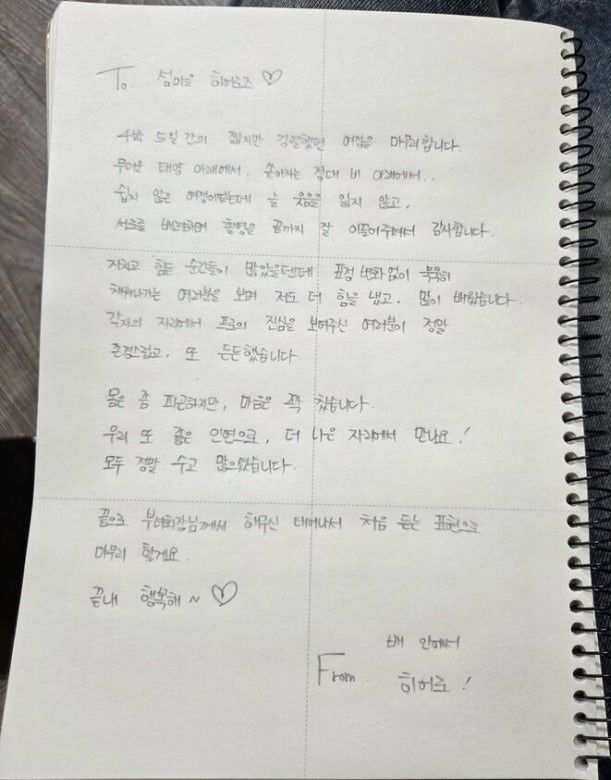 To. 섬마을 히어로즈 ♡
4박 5일 간의 짧지만 강렬했던 여정을 마무리합니다.
무더운 태양 아래에서, 쏟아지는 장대 비 아래에서..
쉽지 않은 여정이었는데 늘 웃음을 잃지 않고,
서로를 배려하며 촬영을 끝까지 잘 이끌어주셔서 감사합니다.
지치고 힘든 순간들이 많았을텐데 표정 변화 없이 묵묵히
채워나가는 여러분을 보며 저도 더 힘을 냈고, 많이 배웠습니다.
각자의 자리에서 프로의 진심을 보여주신 여러분이 정말
존경스럽고, 또 든든했습니다
몸은 좀 피곤하지만, 마음은 꽉 찼습니다.
우리 또 좋은 인연으로, 더 나은 자리에서 만나요!
모두 정말 수고 많으셨습니다.
끝으로 부녀회장님께서 해주신 태어나서 처음 듣는 표현으로
마무리 할게요.
끝내 행복해~ ♡
배 안에서
From. 히어로!